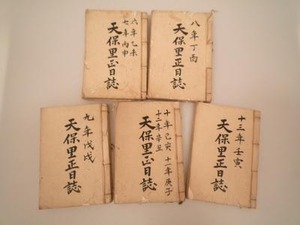 六年乙未
七年丙申
天保里正日誌
八年丁酉
天保里正日誌
九年戊戌
天保里正日誌
十年己亥
十一年庚子
十二年辛丑
天保里正日誌
十三年壬寅
天保里正日誌